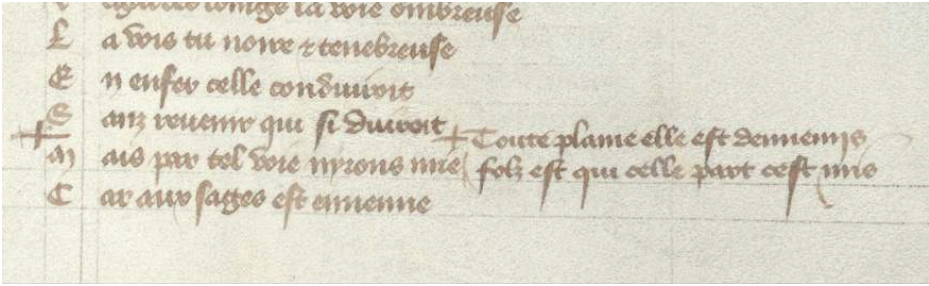 longe la voie ombreuse
L a vois tu noire ⁊ tenebreuse
E n enfer celle conduiroit
S anz revenir qui si duiroit + Toute plaine elle est dennemis
M ais par tel voie nyrons mie folz est qui celle part cest mis
C ar aux sages est ennemie